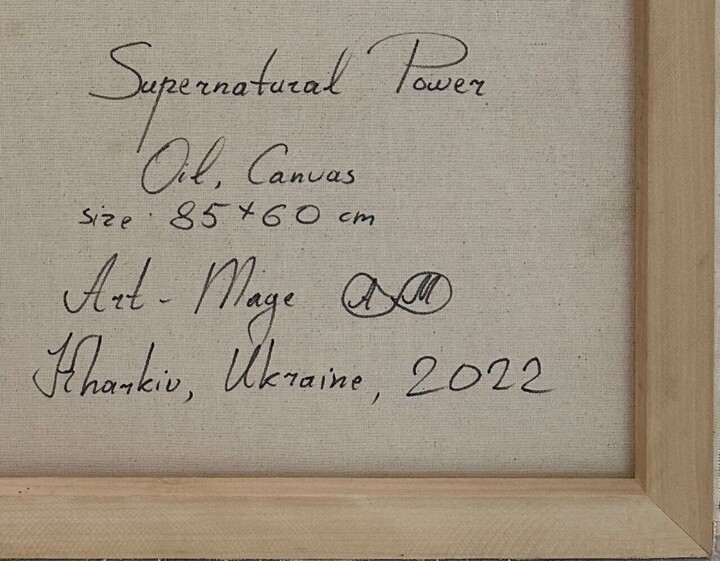 Supernatural Power
Oil, Canvas
size 85×60 cm
Art-Mage AM
Kharkiv, Ukraine, 2022